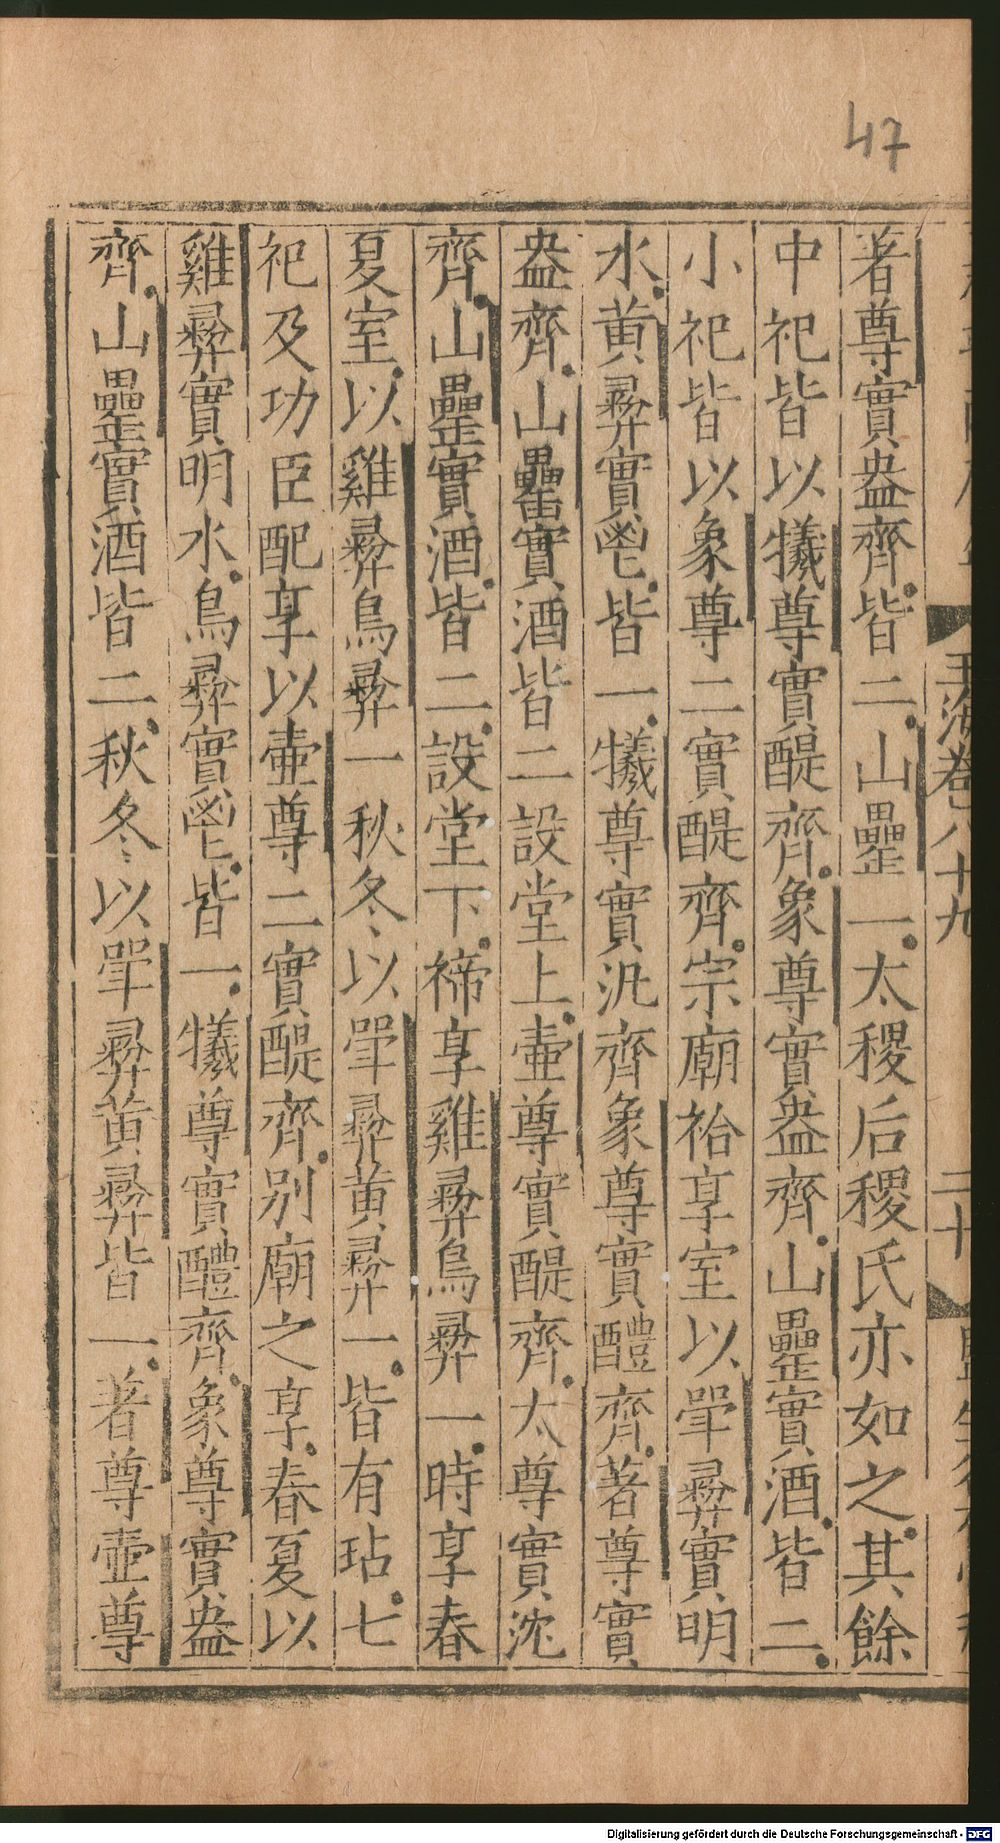 47
玉海卷八十九
二十
著尊實盎齊皆二山罍一太稷后稷氏亦如之其餘
中祀皆以犧尊實醍齊象尊實盎齊山罍實酒皆二
小祀皆以象尊二實醍齊宗廟祫享室以斝彞實明
水黃彞實鬯皆一犧尊實汎齊象尊實醴齊著尊實
盎齊山罍實酒皆二設堂上壷尊實醍齊太尊實沈
齊山罍實酒皆二設堂下禘享雞彞鳥彞一時享春
夏室以雞彞鳥彞一秋冬以斝彞黃彞一皆有坫七
祀及功臣配享以壷尊二實醍齊別廟之享春夏以
雞彞實明水鳥彞實鬯皆一犧尊實醴齊象尊實盎
齊山罍實酒皆二秋冬以斝彞黃彞皆一著尊壷尊
Digitalisierung gefördert durch die Deutsche Forschungsgemeinschaft - DFG